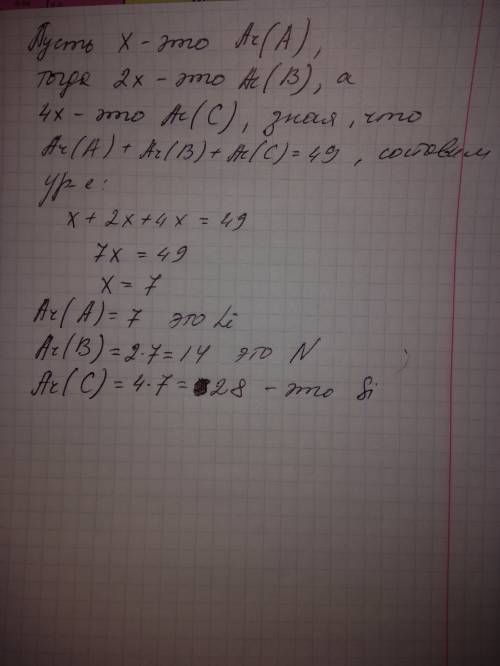 Пусть x - это Ar(A),
тогда 2x - это Ar(B), а
4x - это Ar(C), зная, что
Ar(A) + Ar(B) + Ar(C) = 49, составим
ур-е:
x + 2x + 4x = 49
7x = 49
x = 7
Ar(A) = 7 это Li
Ar(B) = 2·7 = 14 это N
Ar(C) = 4·7 = 28 - это Si